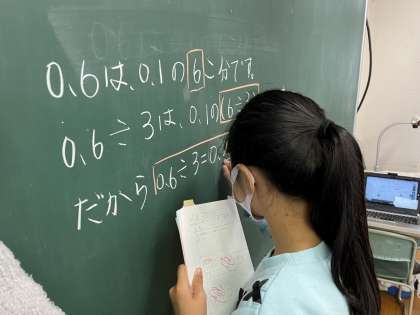 0.6は、0.1の6こ分です。
0.6÷3は、0.1の(6÷3)
だから 0.6÷3=0.